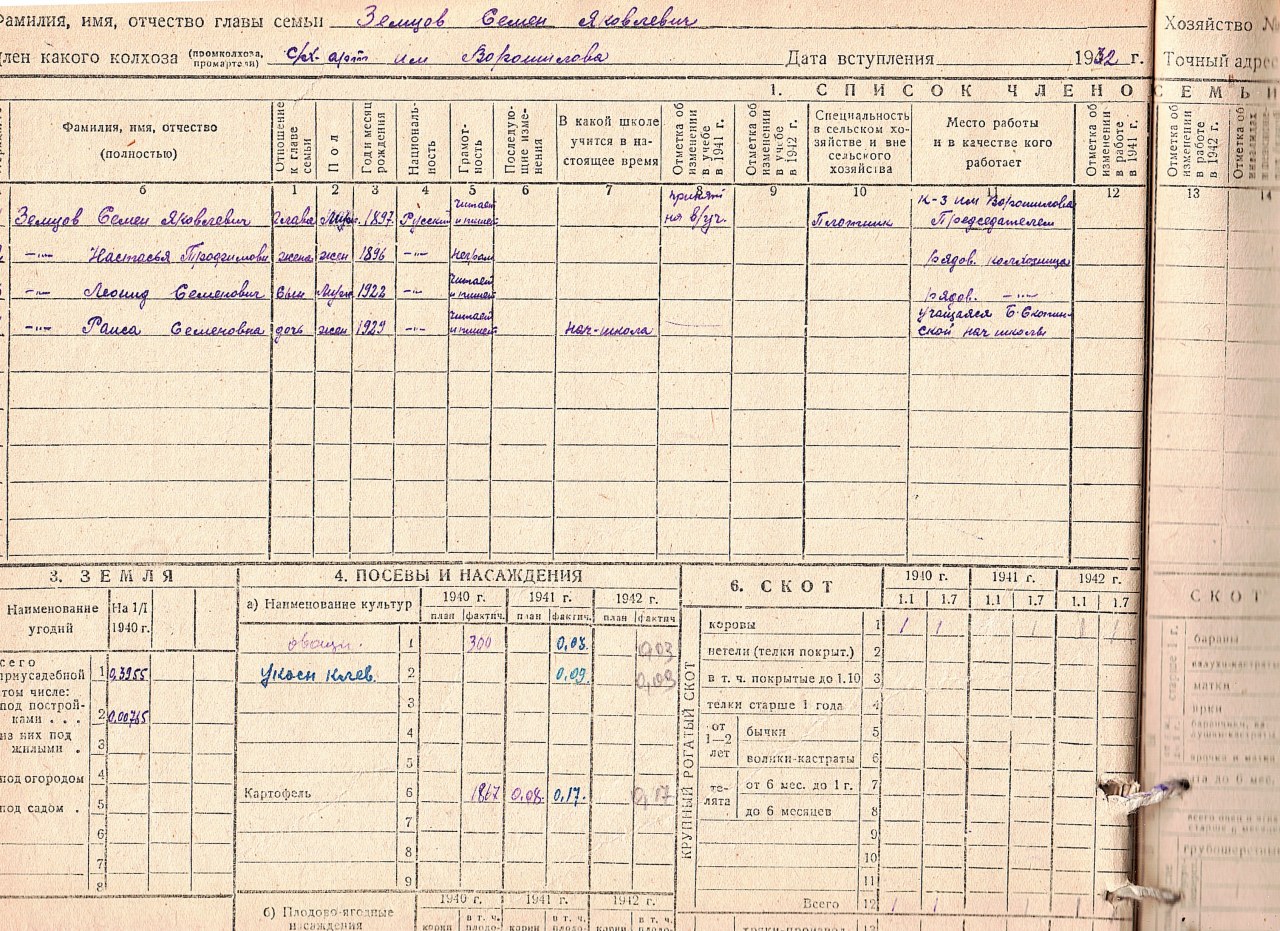 Фамилия, имя, отчество главы семьи Земцов Семен Яковлевич
член какого колхоза (промколхоза, промартели) с/х. арт им Ворошилова Дата вступления 1932 г.
Хозяйство №
Точный адрес
1. СПИСОК ЧЛЕНОВ СЕМЬИ
Фамилия, имя, отчество (полностью)
Отношение к главе семьи
Пол
Год и месяц рождения
Националь-
ность
Грамот-
ность
Последую-
щие изме-
нения
В какой школе
учится в на-
стоящее время
Отметка об
изменении
в учебе
в 1941 г.
Отметка об
изменении
в учебе
в 1942 г.
Специальность
в сельском хо-
зяйстве и вне
сельского
хозяйства
Место работы
и в качестве кого
работает
Отметка об
изменении
в работе
в 1941 г.
Отметка об
изменении
в работе
в 1942 г.
Отметка об
б 1 2 3 4 5 6 7 8 9 10 11 12 13 14
Земцов Семен Яковлевич глава муж. 1897 Русский читает и пишет принят на в/уч. Плотник К-з им Ворошилова Председателем
–"– Настасья Трофимовн жена жен 1896 –"– неграм рядов. колхозница
–"– Леонид Семенович сын муж 1922 –"– читает и пишет рядов. –"–
–"– Раиса Семеновна дочь жен 1929 –"– читает и пишет нач-школа учащаяся Б-Скопин-
ской нач школы
3. ЗЕМЛЯ
Наименование
угодий
На 1/I
1940 г.
всего
приусадебной 1 0,3955
том числе:
под построй-
ками . . . 2 0,00765
из них под
жилыми . 3
под огородом 4
под садом . 5
6
7
8
4. ПОСЕВЫ И НАСАЖДЕНИЯ
а) Наименование культур
1940 г. 1941 г. 1942 г.
план фактич. план фактич. план фактич
овощи. 1 300 0,08. 0,03
укосн клев. 2 0,09. 0,09
3
4
5
Картофель 6 1867 0,08. 0,17. 0,17
7
8
9
б) Плодово-ягодные
насаждения
1940 г. 1941 г. 1942 г.
корни в т. ч.
плодо- корни в т. ч.
плодо- корни в т. ч.
плодо-
6. СКОТ
1940 г. 1941 г. 1942 г.
1.1 1.7 1.1 1.7 1.1 1.7
КРУПНЫЙ РОГАТЫЙ СКОТ
коровы 1 1 1 1 1
нетели (телки покрыт.) 2
в т. ч. покрытые до 1.10 3
телки старше 1 года 4
от
1—2
лет
бычки 5
волики-кастраты 6
те-
лята
от 6 мес. до 1 г. 7
до 6 месяцев 8
9
10
11
Всего 12 1 1 1 1 1
13
СКОТ
старше 1 г.
бараны
валухи-кастраты
матки
ярки
до 6 мес.
грубошерстны